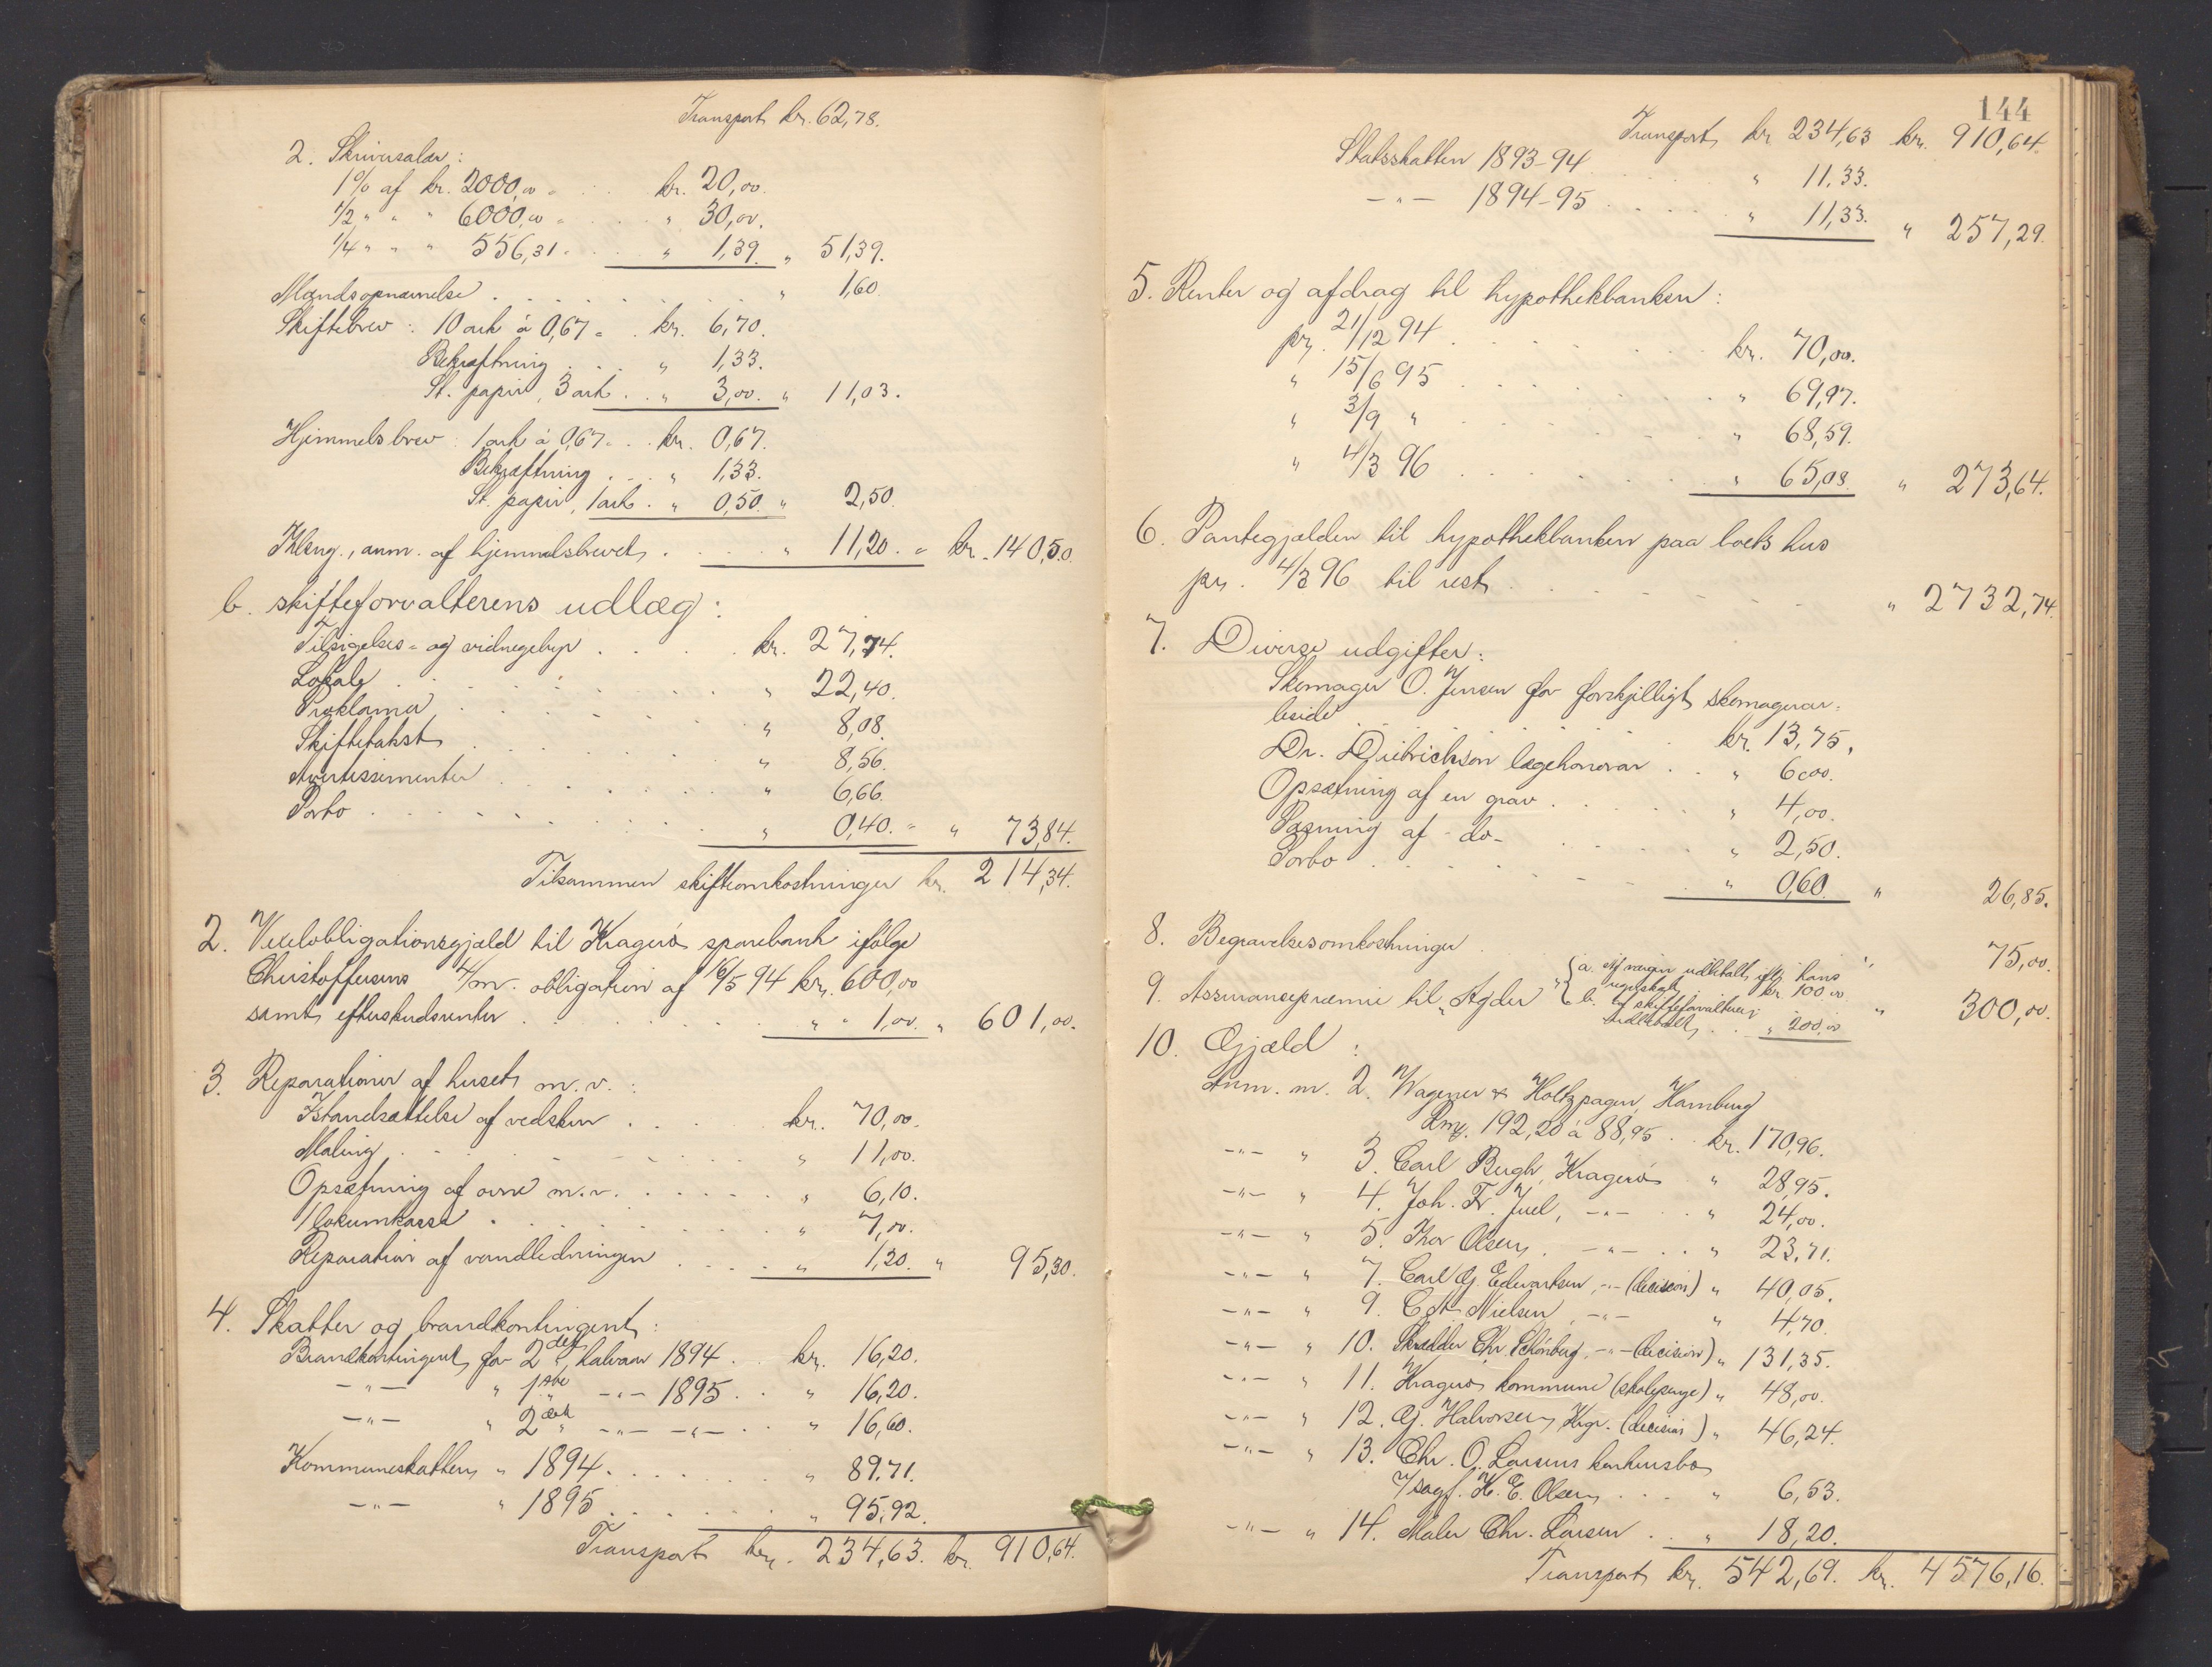 Transport kr. 62,78.
2. Skriversalær:
1% af kr. 2000,00 = . . kr. 20,00.
1/2 " " " 6000,00 = . . . " 30,00.
1/4 " " " 556,31 = . . . " 1,39. " 51,39.
Mandsopnævnelse . . . . . . . . " 1,60
Skiftebrev: 10 ark à 0,67 = . kr. 6,70.
Bekræftning . . . " 1,33.
St. papir, 3 ark . . " 3,00. " 11,03.
Hjemmelsbrev: 1 ark à 0,67 = . . kr. 0,67.
Bekræftning . . . " 1,33.
St. papir, 1 ark . " 0,50. " 2,50.
Thlæsng., anm. af hjemmelsbrevet . . . . . " 11,20. = kr. 140,50.
b. skifteforvalterens udlæg:
Tilsigelses- og vidnegebyr . . . . . kr. 27,74.
Lokale . . . . . . . . . " 22,40.
Proklama . . . . . . . . " 8,08.
Skiftetakst . . . . . . . " 8,56.
Avertissementer . . . . . . " 6,66.
Porto . . . . . . . . . " 0,40. = " 73,84.
Tilsammen skifteomkostninger kr. 214,34.
2. Vexelobligationsgjæld til Kragerø sparebank ifølge
Christoffersens 4/m. obligation af 16/5 94 kr. 600,00
samt efterskudsrenter . . . . . . . " " 1,00. " 601,00.
3. Reparationer af huset m. v.:
Istandsættelse af vedskur . . . kr. 70,00.
Maling . . . . . . . . " 11,00.
Opsætning af ovne m. v. . . . . . " 6,10.
1 lokumkasse . . . . . . . " 7,00.
Reparation af vandledningen . . . . " 1,20. " 95,30.
4. Skatter og brandkontingent:
Brandkontingent for 2det halvaar 1894 . . kr. 16,20.
—"— " 1ste —"— 1895 . . " 16,20.
—"— " 2det —"— —"— . . " 16,60.
Kommuneskatten " 1894 . . . . . . . " 89,71.
—"— " 1895 . . . . . . . " 95,92.
Transport kr. 234,63. kr. 910,64.
144
Transport kr. 234,63 kr. 910,64.
Statsskatten 1893-94 . . . . . " 11,33.
—"— 1894-95 . . . . . " 11,33. " 257,29.
5. Renter og afdrag til hypothekbanken:
pr. 21/12 94 . . . . . . . kr. 70,00.
" 15/6 95 . . . . . . . " 69,97.
" 3/9 " . . . . . . . " 68,59.
" 4/3 96 . . . . . . . " 65,08. " 273,64.
6. Pantegjælden til hypothekbanken paa boets hus
pr. 4/3 96 til rest . . . . . . . . " 2732,74.
7. Diverse udgifter:
Skomager O. Jensen for forskjelligt skomagerar=
beide . . . . . . . . kr. 13,75.
Dr. Dietrichson lægehonorar . . " 6,00.
Opsætning af en grav . . . . . " 4,00.
Pasning af - do - . . . . " 2,50.
Porto . . . . . . . . " 0,60. " 26,85.
8. Begravelsesomkostninger . . . " 75,00.
9. Assurancepræmie til "Agder" { a. Af værgen udbetalt iflg. hans
regnskab . . kr. 100,00
b. af skifteforvalteren
udbetalt . . " 200,00 " 300,00.
10. Gjæld:
Anm. nr. 2. Wagener & Holtzpagen, Hamburg
Rmk. 192,20 à 88,95 . . kr. 170,96.
—"— " 3. Carl Bergh, Kragerø . " 28,95.
—"— " 4. Joh. Fr. Juel, —"— . . " 24,00.
—"— " 5. Thor Olsen, —"— . . " 23,71.
—"— " 7. Carl G. Edvartsen, —"— (decision) " 40,05.
—"— " 9. C. A. Nielsen, —"— " 4,70.
—"— " 10. Skrædder Chr. Schønberg, —"— (decision) " 131,35.
—"— " 11. Kragerø kommune (skolepenge) " 48,00.
—"— " 12. G. Halvorsen, Krgr. (decision) " 46,24.
—"— " 13. Chr. O. Larsens konkursbo
v/ sagf. K. E. Olsen . . . " 6,53.
—"— " 14. Maler Chr. Larsen . . " 18,20.
Transport kr. 542,69. kr. 4576,16.